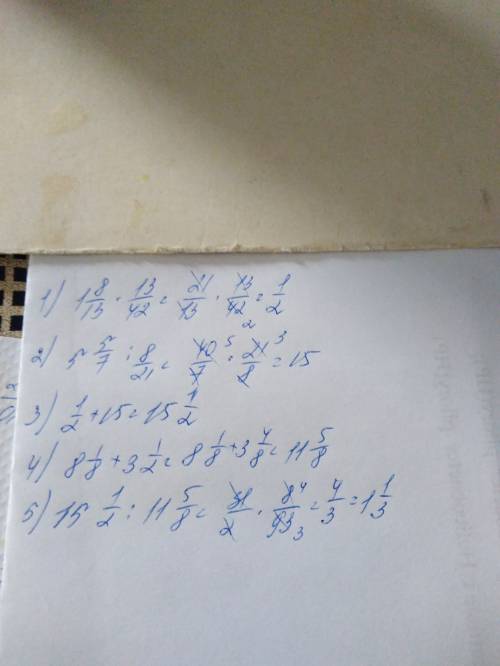 1) 1 8/13 · 13/42 = 21/13 · 13/42 2 = 1/2
2) 5 5/7 : 8/21 = 40/7 5 · 21/8 3 = 15
3) 1/2 + 15 = 15 1/2
4) 8 1/8 + 3 1/2 = 8 1/8 + 3 4/8 = 11 5/8
5) 15 1/2 : 11 5/8 = 31/2 · 8/93 4 3 = 4/3 = 1 1/3